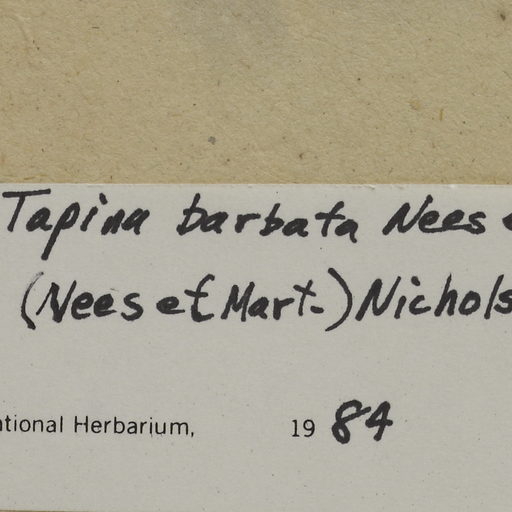 Tapina barbata Nees e
(Nees et Mart.) Nichols
ational Herbarium, 19 84